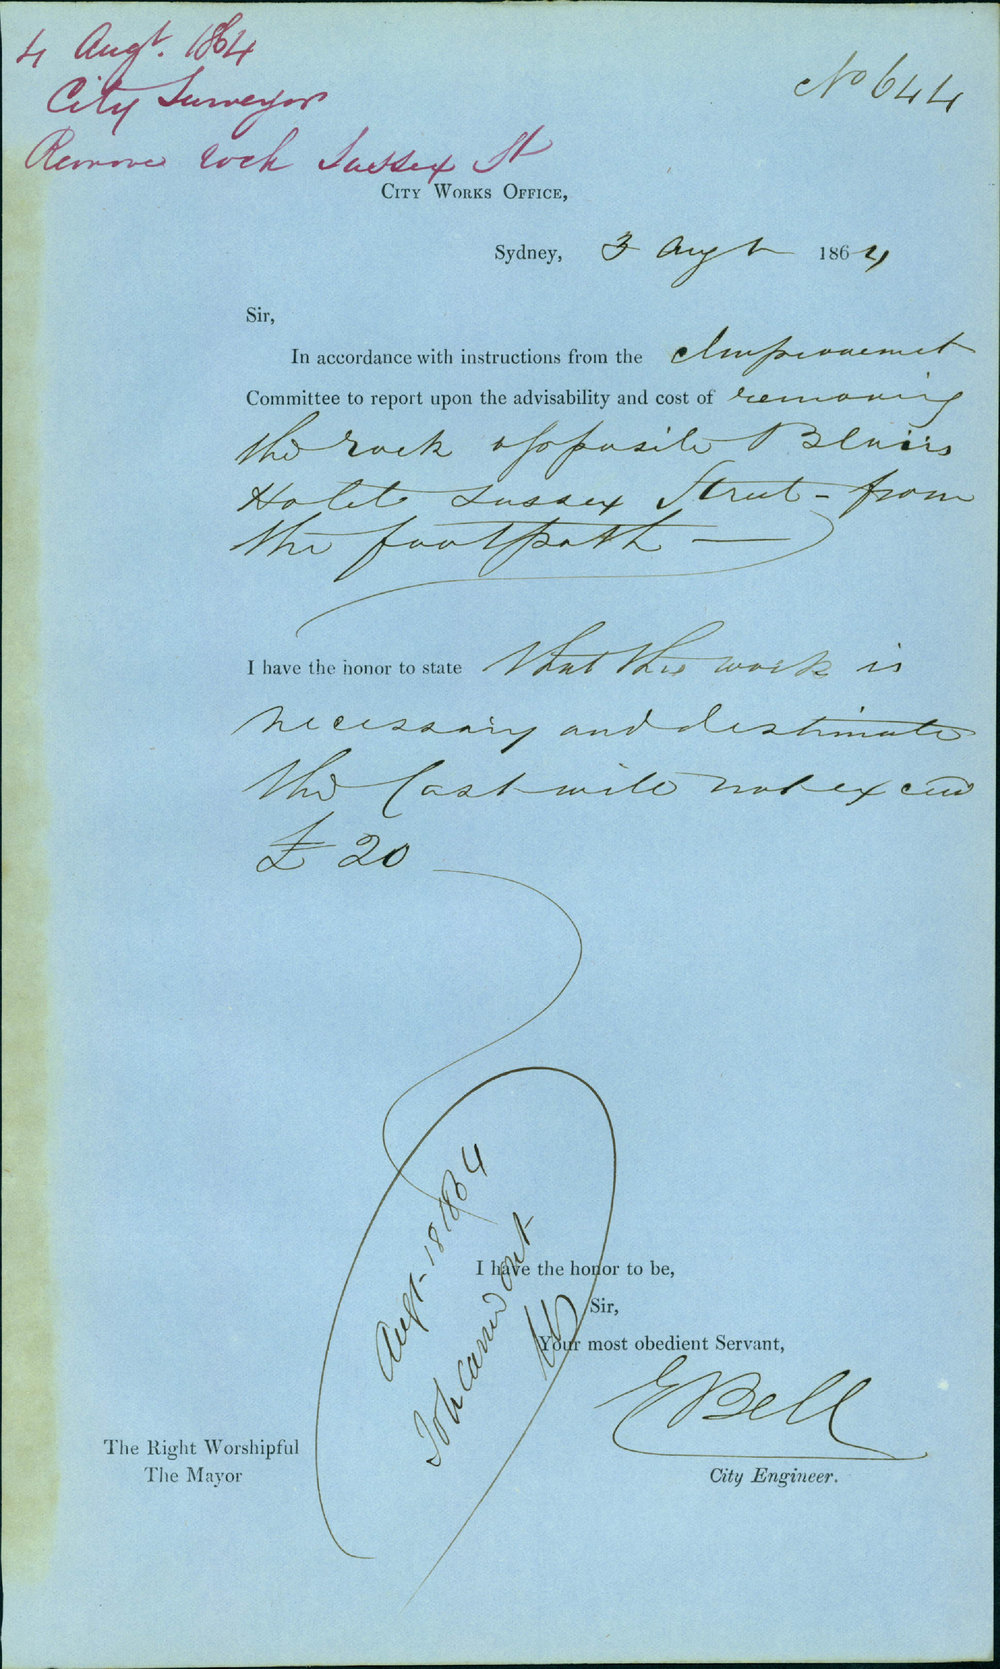 4 Augt. 1864
City Surveyor
Remove rock Sussex St
No 644
City Works Office,
Sydney, 3 Augt 1864
Sir,
In accordance with instructions from the Improvement
Committee to report upon the advisability and cost of removing
the rock opposite Blairs
Hotel Sussex Street - from
the footpath —
I have the honor to state that this work is
necessary and I estimate
the Cost will not exceed
£ 20
Augt - 18 1864
To be carried out
I have the honor to be,
Sir,
Your most obedient Servant,
E Bell
City Engineer.
The Right Worshipful
The Mayor